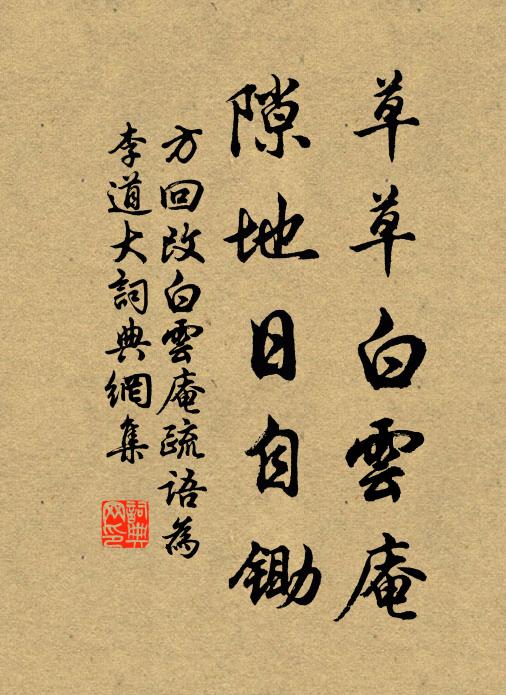 草草白雲庵
隙地日自鋤
方回改白雲庵疏語為
李道大詞典網集
詞典
网印